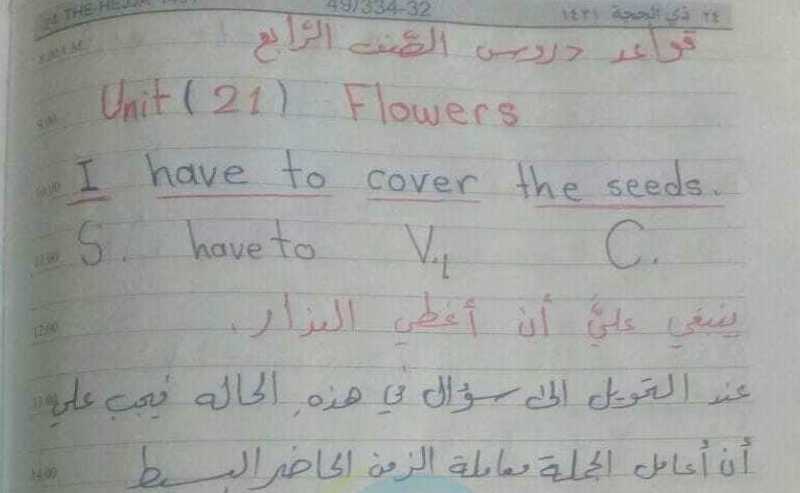 24 THE HEJJA 1431 49/334-32 ٢٤ ذي الحجة ١٤٣١
قواعد دروس الصّف الرّابع
Unit (21) Flowers
10:00 I have to cover the seeds.
11:00 S. have to V.1 C.
12:00 ينبغي عليَّ أن أغطي البذار.
13:00 عند التحويل الى سؤال في هذه الحاله فيجب علي
14:00 أن أعامل الجملة معاملة الزمن الحاضر البسيط